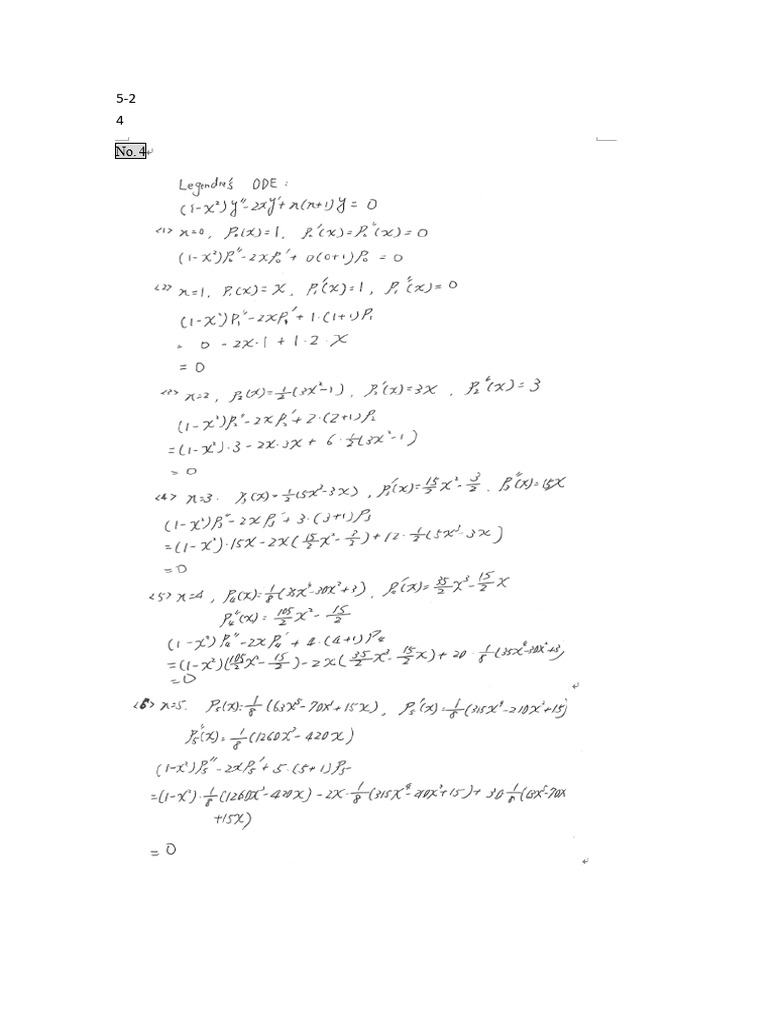 5-2
4
No. 4
Legendre's ODE :
(1-x²)y″-2xy′+n(n+1)y = 0
<1> n=0, P₀(x)=1, P₀′(x)=P₀″(x)=0
(1-x²)P₀″-2xP₀′+0(0+1)P₀ = 0
<2> n=1, P₁(x)=x, P₁′(x)=1, P₁″(x)=0
(1-x²)P₁″-2xP₁′+1·(1+1)P₁
= 0 - 2x·1 + 1·2·x
= 0
<3> n=2, P₂(x)=½(3x²-1), P₂′(x)=3x, P₂″(x)=3
(1-x²)P₂″-2xP₂′+2·(2+1)P₂
=(1-x²)·3-2x·3x+6·½(3x²-1)
=0
<4> n=3. P₃(x)=½(5x³-3x), P₃′(x)=15/2x²-3/2. P₃″(x)=15x
(1-x²)P₃″-2xP₃′+3·(3+1)P₃
=(1-x²)·15x-2x(15/2x²-3/2)+12·½(5x³-3x)
=0
<5> n=4, P₄(x)=⅛(35x⁴-30x²+3), P₄′(x)=35/2x³-15/2x
P₄″(x)=105/2x²-15/2
(1-x²)P₄″-2xP₄′+4·(4+1)P₄
=(1-x²)(105/2x²-15/2)-2x(35/2x³-15/2x)+20·⅛(35x⁴-30x²+3)
=0
<6> n=5. P₅(x)=⅛(63x⁵-70x³+15x), P₅′(x)=⅛(315x⁴-210x²+15)
P₅″(x)=⅛(1260x³-420x)
(1-x²)P₅″-2xP₅′+5·(5+1)P₅
=(1-x²)·⅛(1260x³-420x)-2x·⅛(315x⁴-210x²+15)+30⅛(63x⁵-70x³
+15x)
= 0